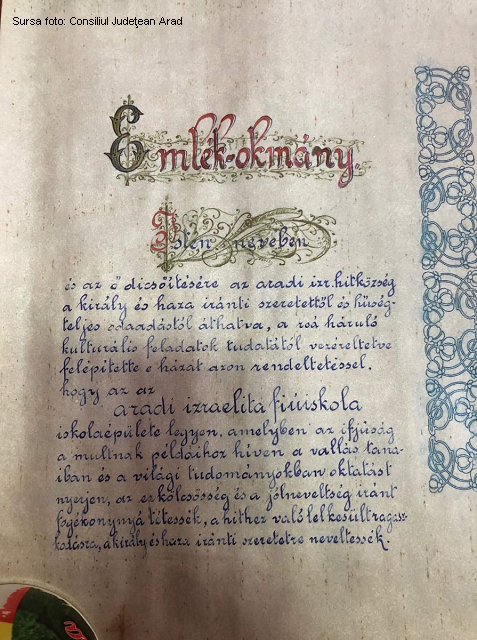 Sursa foto: Consiliul Judeţean Arad
Emlék-okmány.
Isten nevében
és az ő dicsőitésére az aradi izr. hitközség
a király és haza iránti szeretettől és hűség-
teljes odaadástól áthatva, a reá háruló
kulturális feladatok tudatától vezéreltetve
felépitette e házat azon rendeltetéssel.
hogy az az
aradi izraelita fiúiskola
iskolaépülete legyen, amelyben az ifjúság
a multnak példáihoz hiven a vallás tana-
iban és a világi tudományokban oktatást
nyerjen, az erkölcsösség és a jólneveltség iránt
fogékonynyá tétessék, a hithez való lelkesült ragasz-
kodásra, a király és haza iránti szeretetre neveltessék.